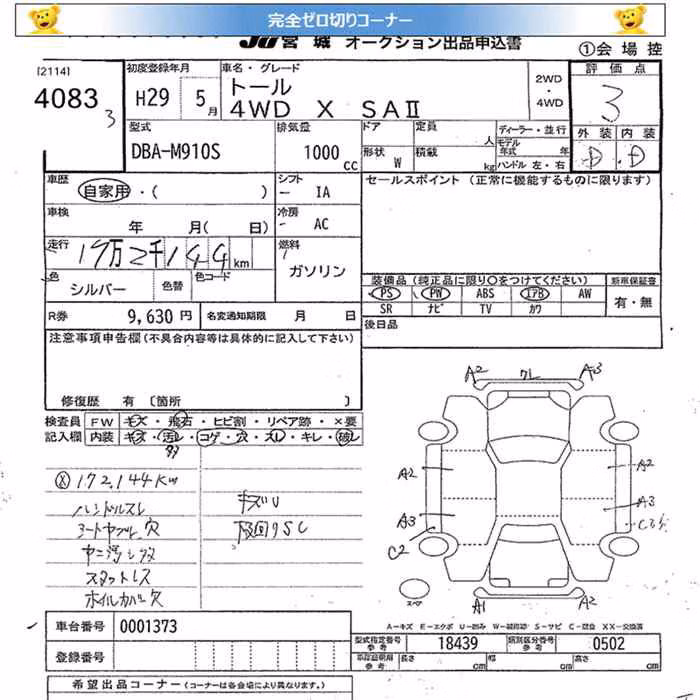 完全ゼロ切りコーナー
JU宮城 オークション出品申込書 ①会場控
[2114] 4083 3
初度登録年月 H29 5月
車名・グレード トール 4WD X SAⅡ
2WD・4WD
評価点 3
外装 D 内装 D
型式 DBA-M910S
排気量 1000 cc
ドア 形状 W
定員 人 積載 kg
ディーラー・並行
モデル年式 年
ハンドル 左・右
車歴 自家用・( )
シフト - IA
セールスポイント (正常に機能するものに限ります)
車検 年 月( 日)
冷房 - AC
走行 17万2千144km
燃料 ガソリン
色 シルバー 色替 色コード
装備品 (純正品に限り○をつけてください) 新車保証書
PS PW ABS エアB AW 有・無
SR ナビ TV カワ
R券 9,630円 名変通知期限 月 日
後日品
注意事項申告欄(不具合内容等は具体的に記入して下さい)
修復歴 有 〔箇所 〕
検査員 FW キズ・飛石・ヒビ割・リペア跡・×要
記入欄 内装 キズ・汚レ・コゲ・穴・スレ・キレ・破レ
ⓧ172,144Km
ハンドルスレ
シートヤブレ穴
スタットレス
ホイルカバー欠
キズU
A2 クレ A3
A2 A2
A3 A3
C2
スペア A1 A2
A-キズ E-エクボ U-凹み W-補修跡 S-サビ C-腐食 XX-交換済
車台番号 0001373
登録番号
型式指定番号 参考 18439 類別区分番号 参考 0502
長さ cm 幅 cm 高さ cm
希望出品コーナー (コーナーは各会場により異なります。)